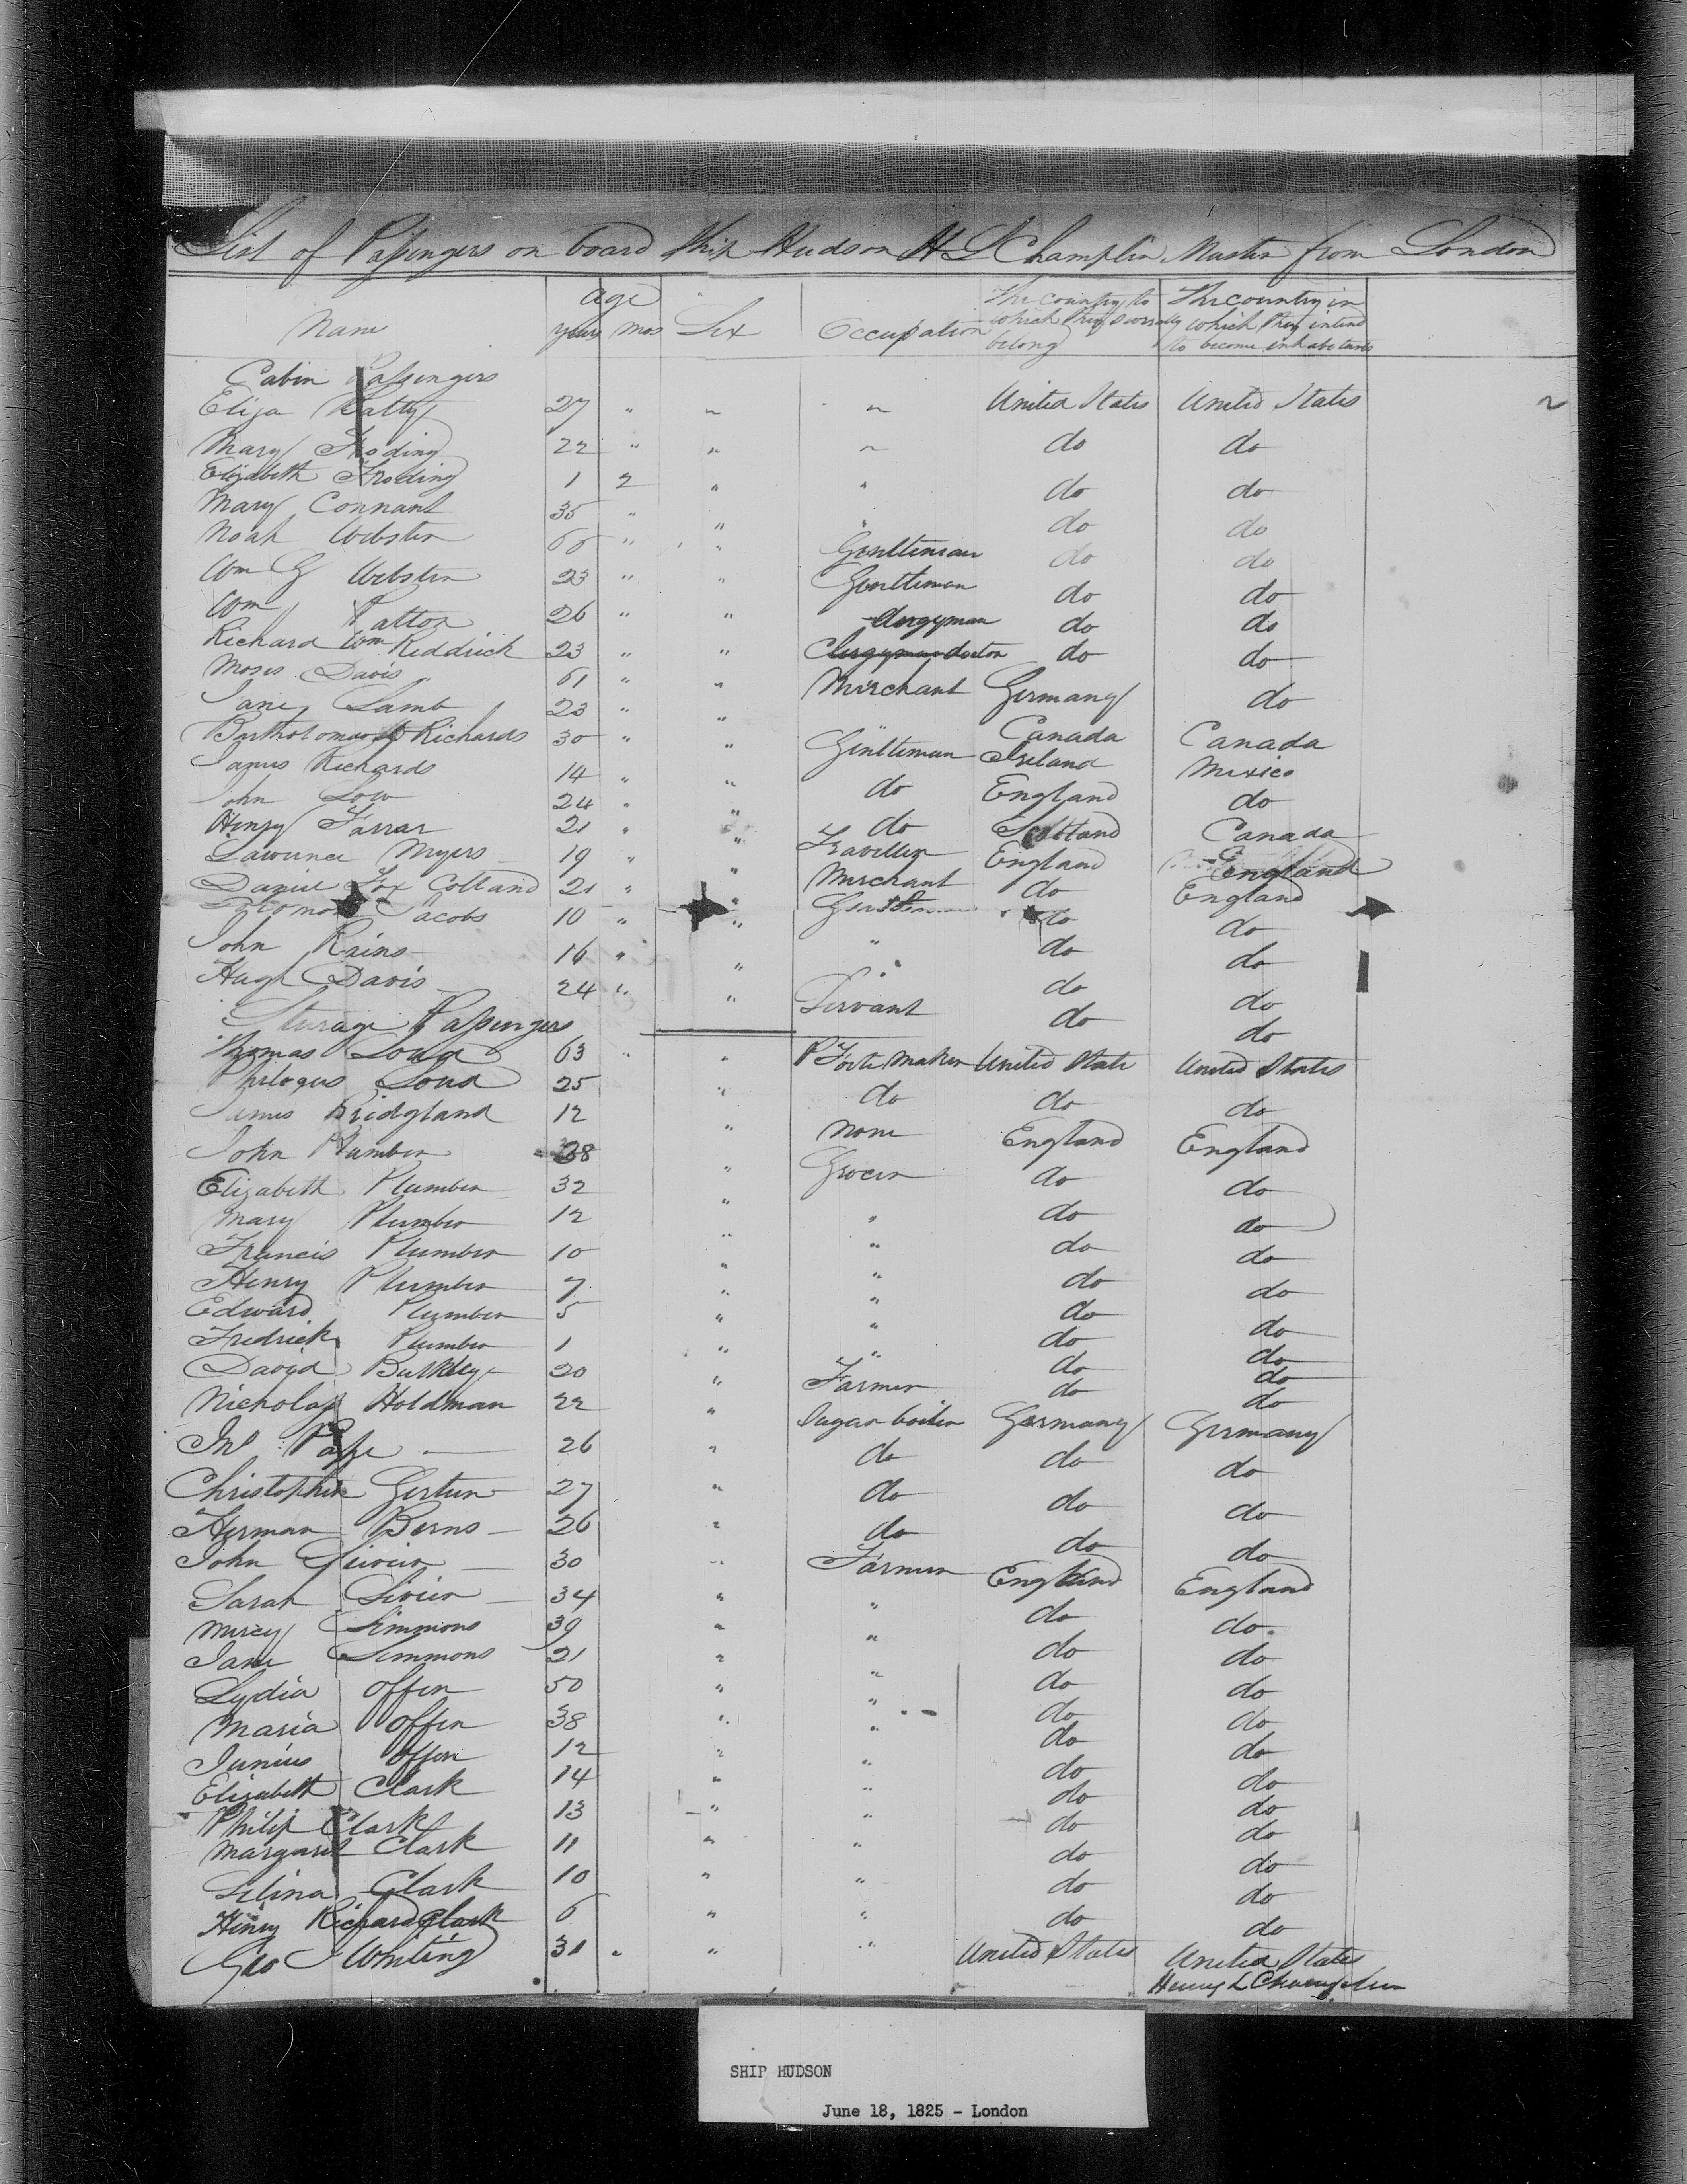 List of Passengers on board Ship Hudson H L Champlin Master from London
Name age years mos Sex Occupation The country to which they severally belong The country in which they intend to become inhabitants
Cabin Passengers
Eliza Batty 27 " " " United States United States
Mary Froding 22 " " " do do
Elizabeth Froding 1 2 " " do do
Mary Connant 35 " " " do do
Noah Webster 66 " " Gentleman do do
Wm G Webster 23 " " Gentleman do do
Wm Patton 26 " " Clergyman do do
Richard Wm Reddrick 23 " " Clergyman doctor do do
Moses Davis 61 " " Merchant Germany do
Jane Lamb 23 " " Canada Canada
Bartholomew Richards 30 " " Gentleman Ireland Mexico
James Richards 14 " " do England do
John Low 24 " " do Scotland Canada
Henry Farrar 21 " " Traveller England England
Lawrence Myers 19 " " Merchant do England
Daniel Fox Colland 21 " " Gentleman do do
Solomon Jacobs 10 " " " do do
John Rains 16 " " " do do
Hugh Davis 24 " " Servant do do
Sterage Passengers
Thomas Loud 63 " " P Forte Maker United State United States
Philogus Loud 25 " do do do
James Bridgland 12 " None England England
John Plumber 38 " Grocer do do
Elizabeth Plumber 32 " " do do
Mary Plumber 12 " " do do
Francis Plumber 10 " " do do
Henry Plumber 7 " " do do
Edward Plumber 5 " " do do
Fredrick Plumber 1 " " do do
David Bulkley 20 " Farmer do do
Nicholas Holdman 22 " Sugar boiler Germany Germany
Jno Pape 26 " do do do
Christopher Gerturn 27 " do do do
Herman Berns 26 " do do do
John Sivier 30 " Farmer England England
Sarah Sivier 34 " " do do
Mercy Simmons 39 " " do do
Jane Simmons 21 " " do do
Lydia Offen 50 " " do do
Maria Offen 38 " " do do
Junius Offen 12 " " do do
Elizabeth Clark 14 " " do do
Philip Clark 13 " " do do
Margaret Clark 11 " " do do
Selina Clark 10 " " do do
Henry Richard Clark 6 " " do do
Geo J Whiting 31 " " " United States United States
Henry L Champlin
SHIP HUDSON
June 18, 1825 - London